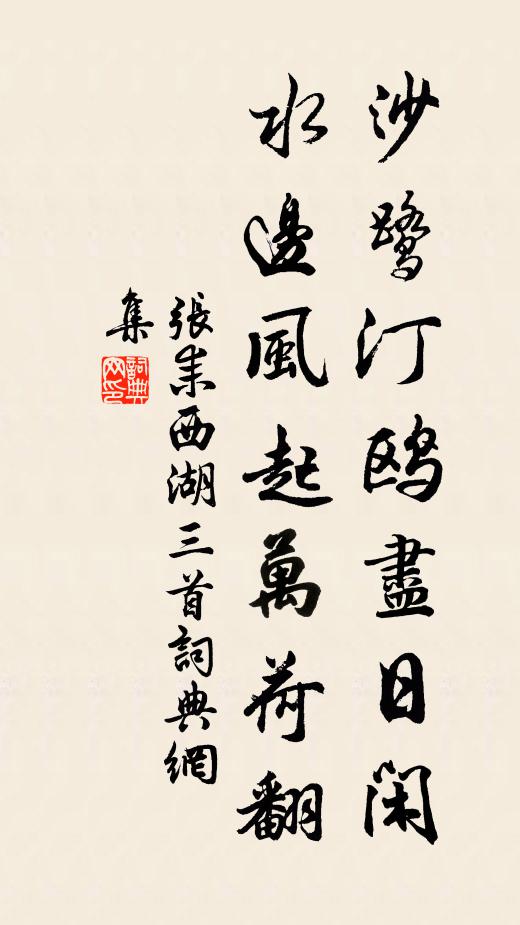 沙鷺汀鸥盡日闲
水邊風起萬荷翻
張耒西湖三首詞典網
集
詞典网印